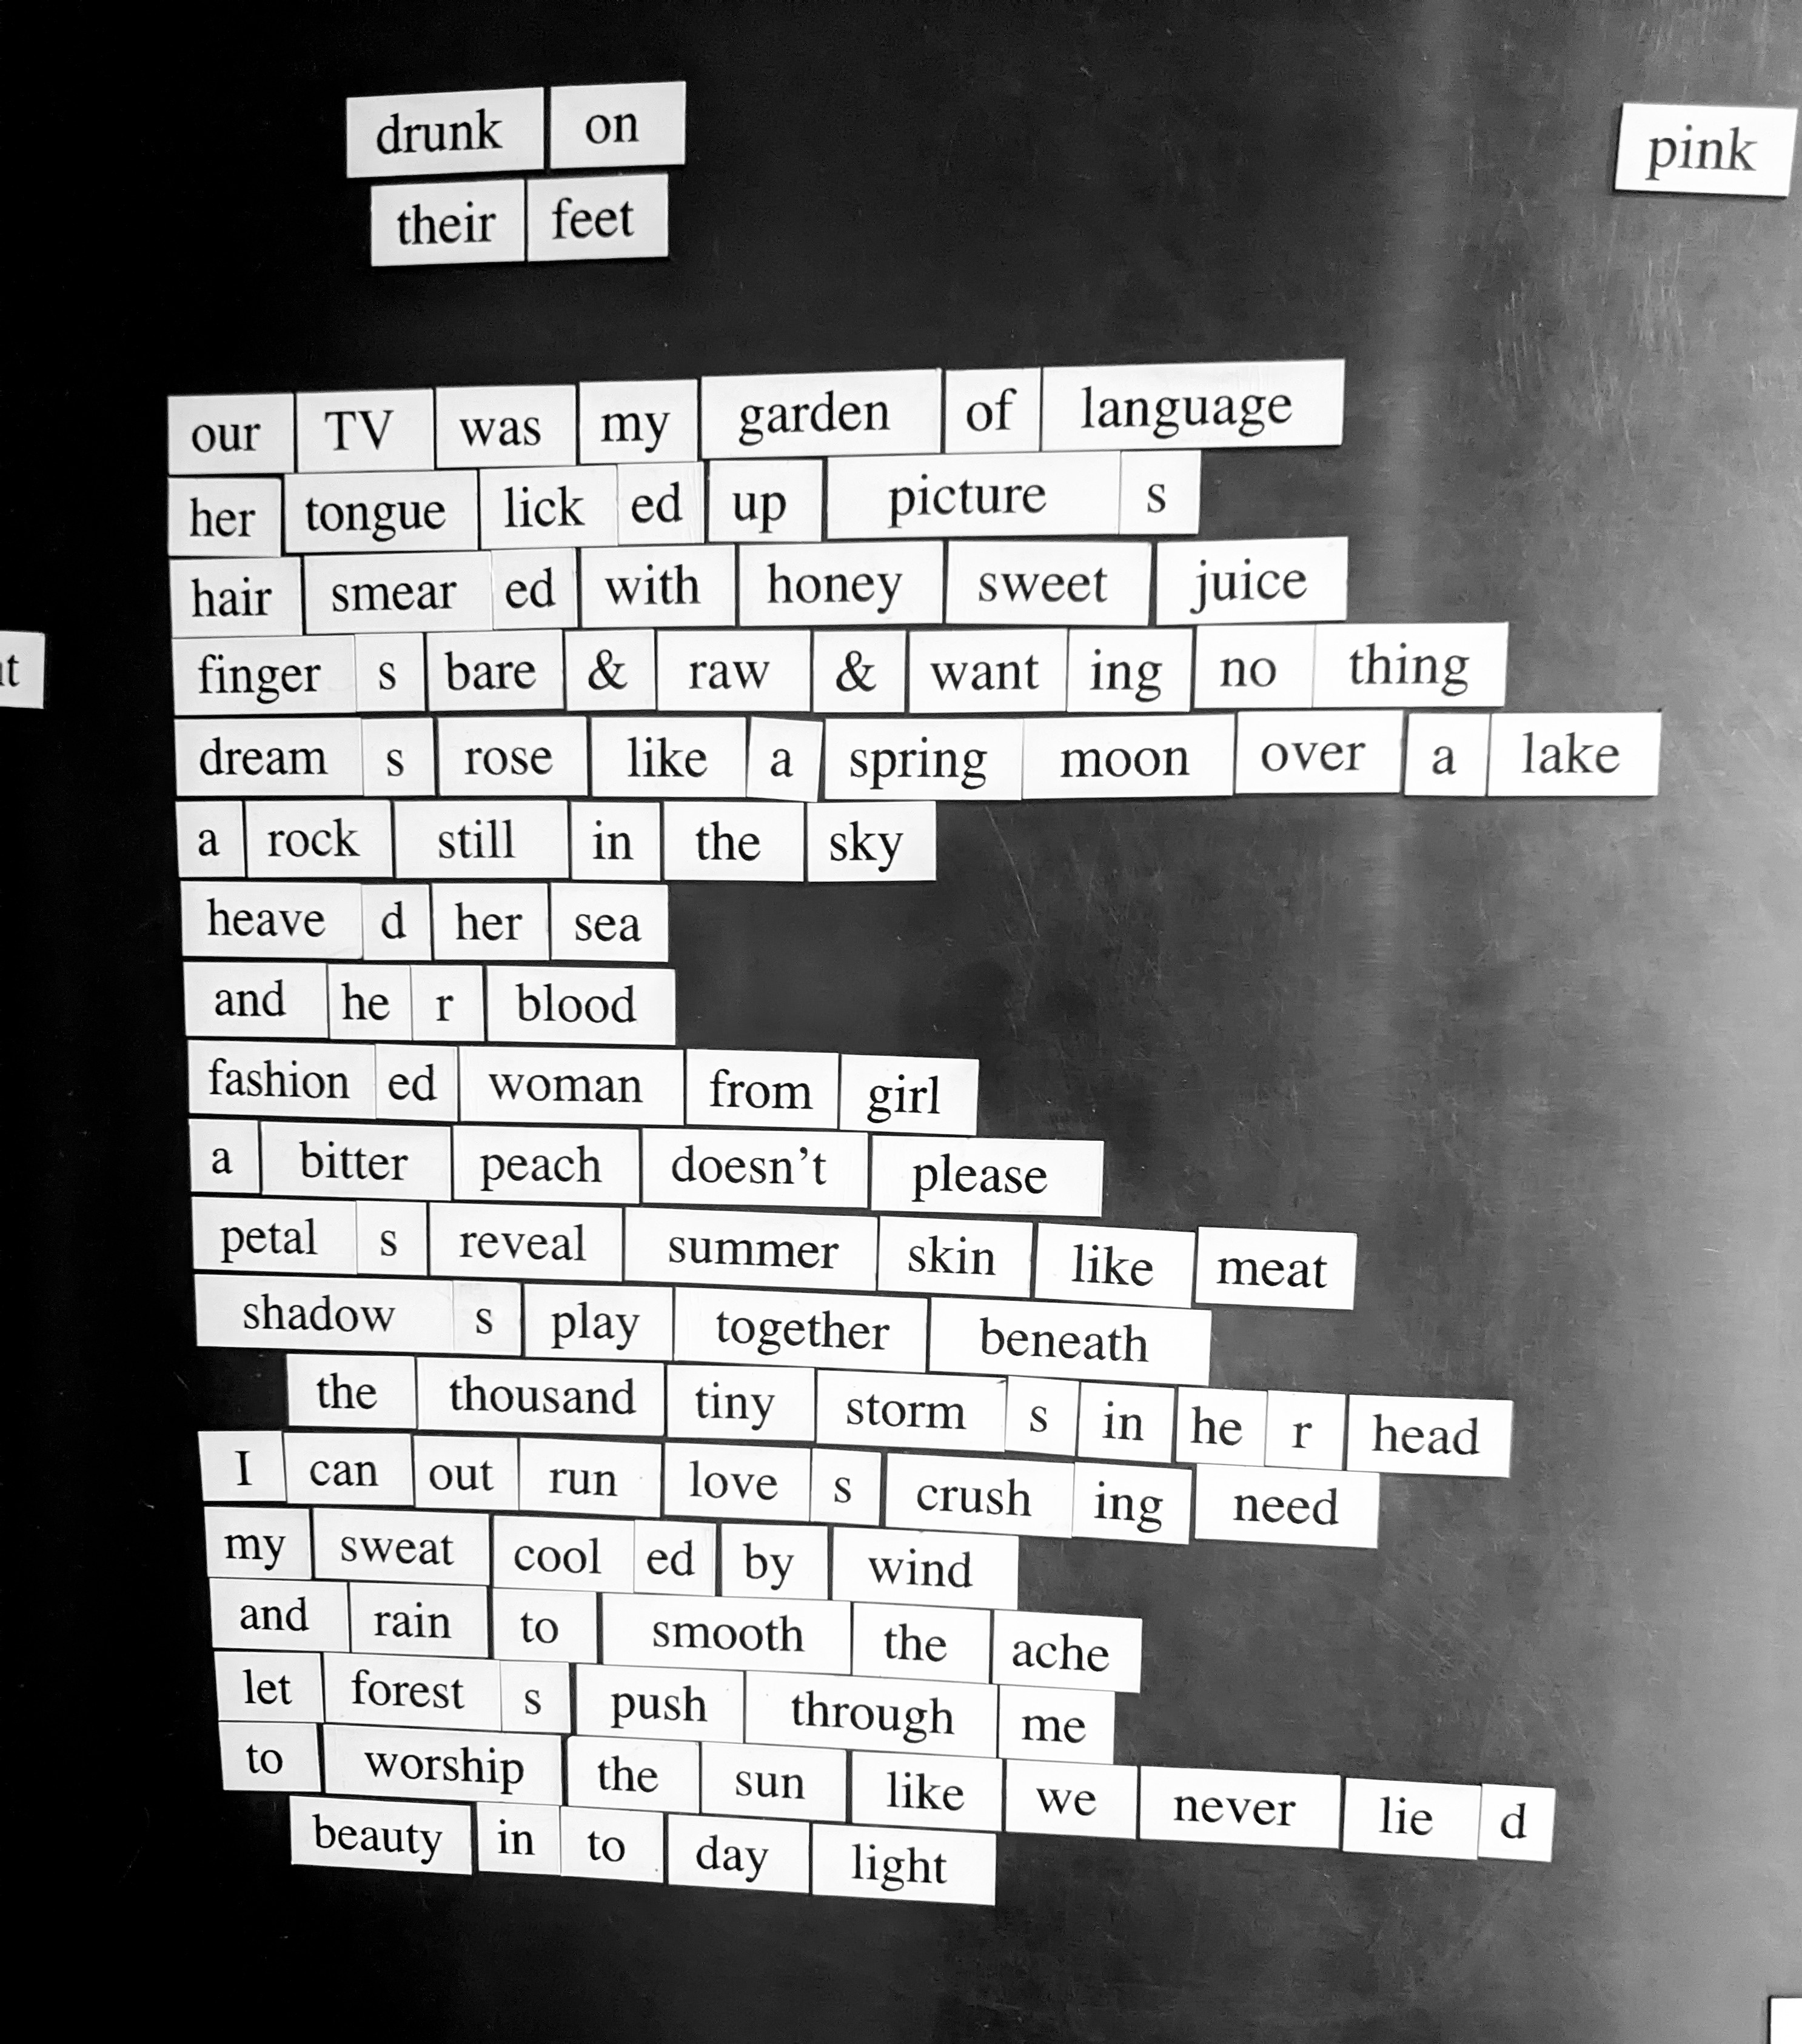 drunk on
pink
their feet
our TV was my garden of language
her tongue lick ed up picture s
hair smear ed with honey sweet juice
finger s bare & raw & want ing no thing
dream s rose like a spring moon over a lake
a rock still in the sky
heave d her sea
and he r blood
fashion ed woman from girl
a bitter peach doesn't please
petal s reveal summer skin like meat
shadow s play together beneath
the thousand tiny storm s in he r head
I can out run love s crush ing need
my sweat cool ed by wind
and rain to smooth the ache
let forest s push through me
to worship the sun like we never lie d
beauty in to day light